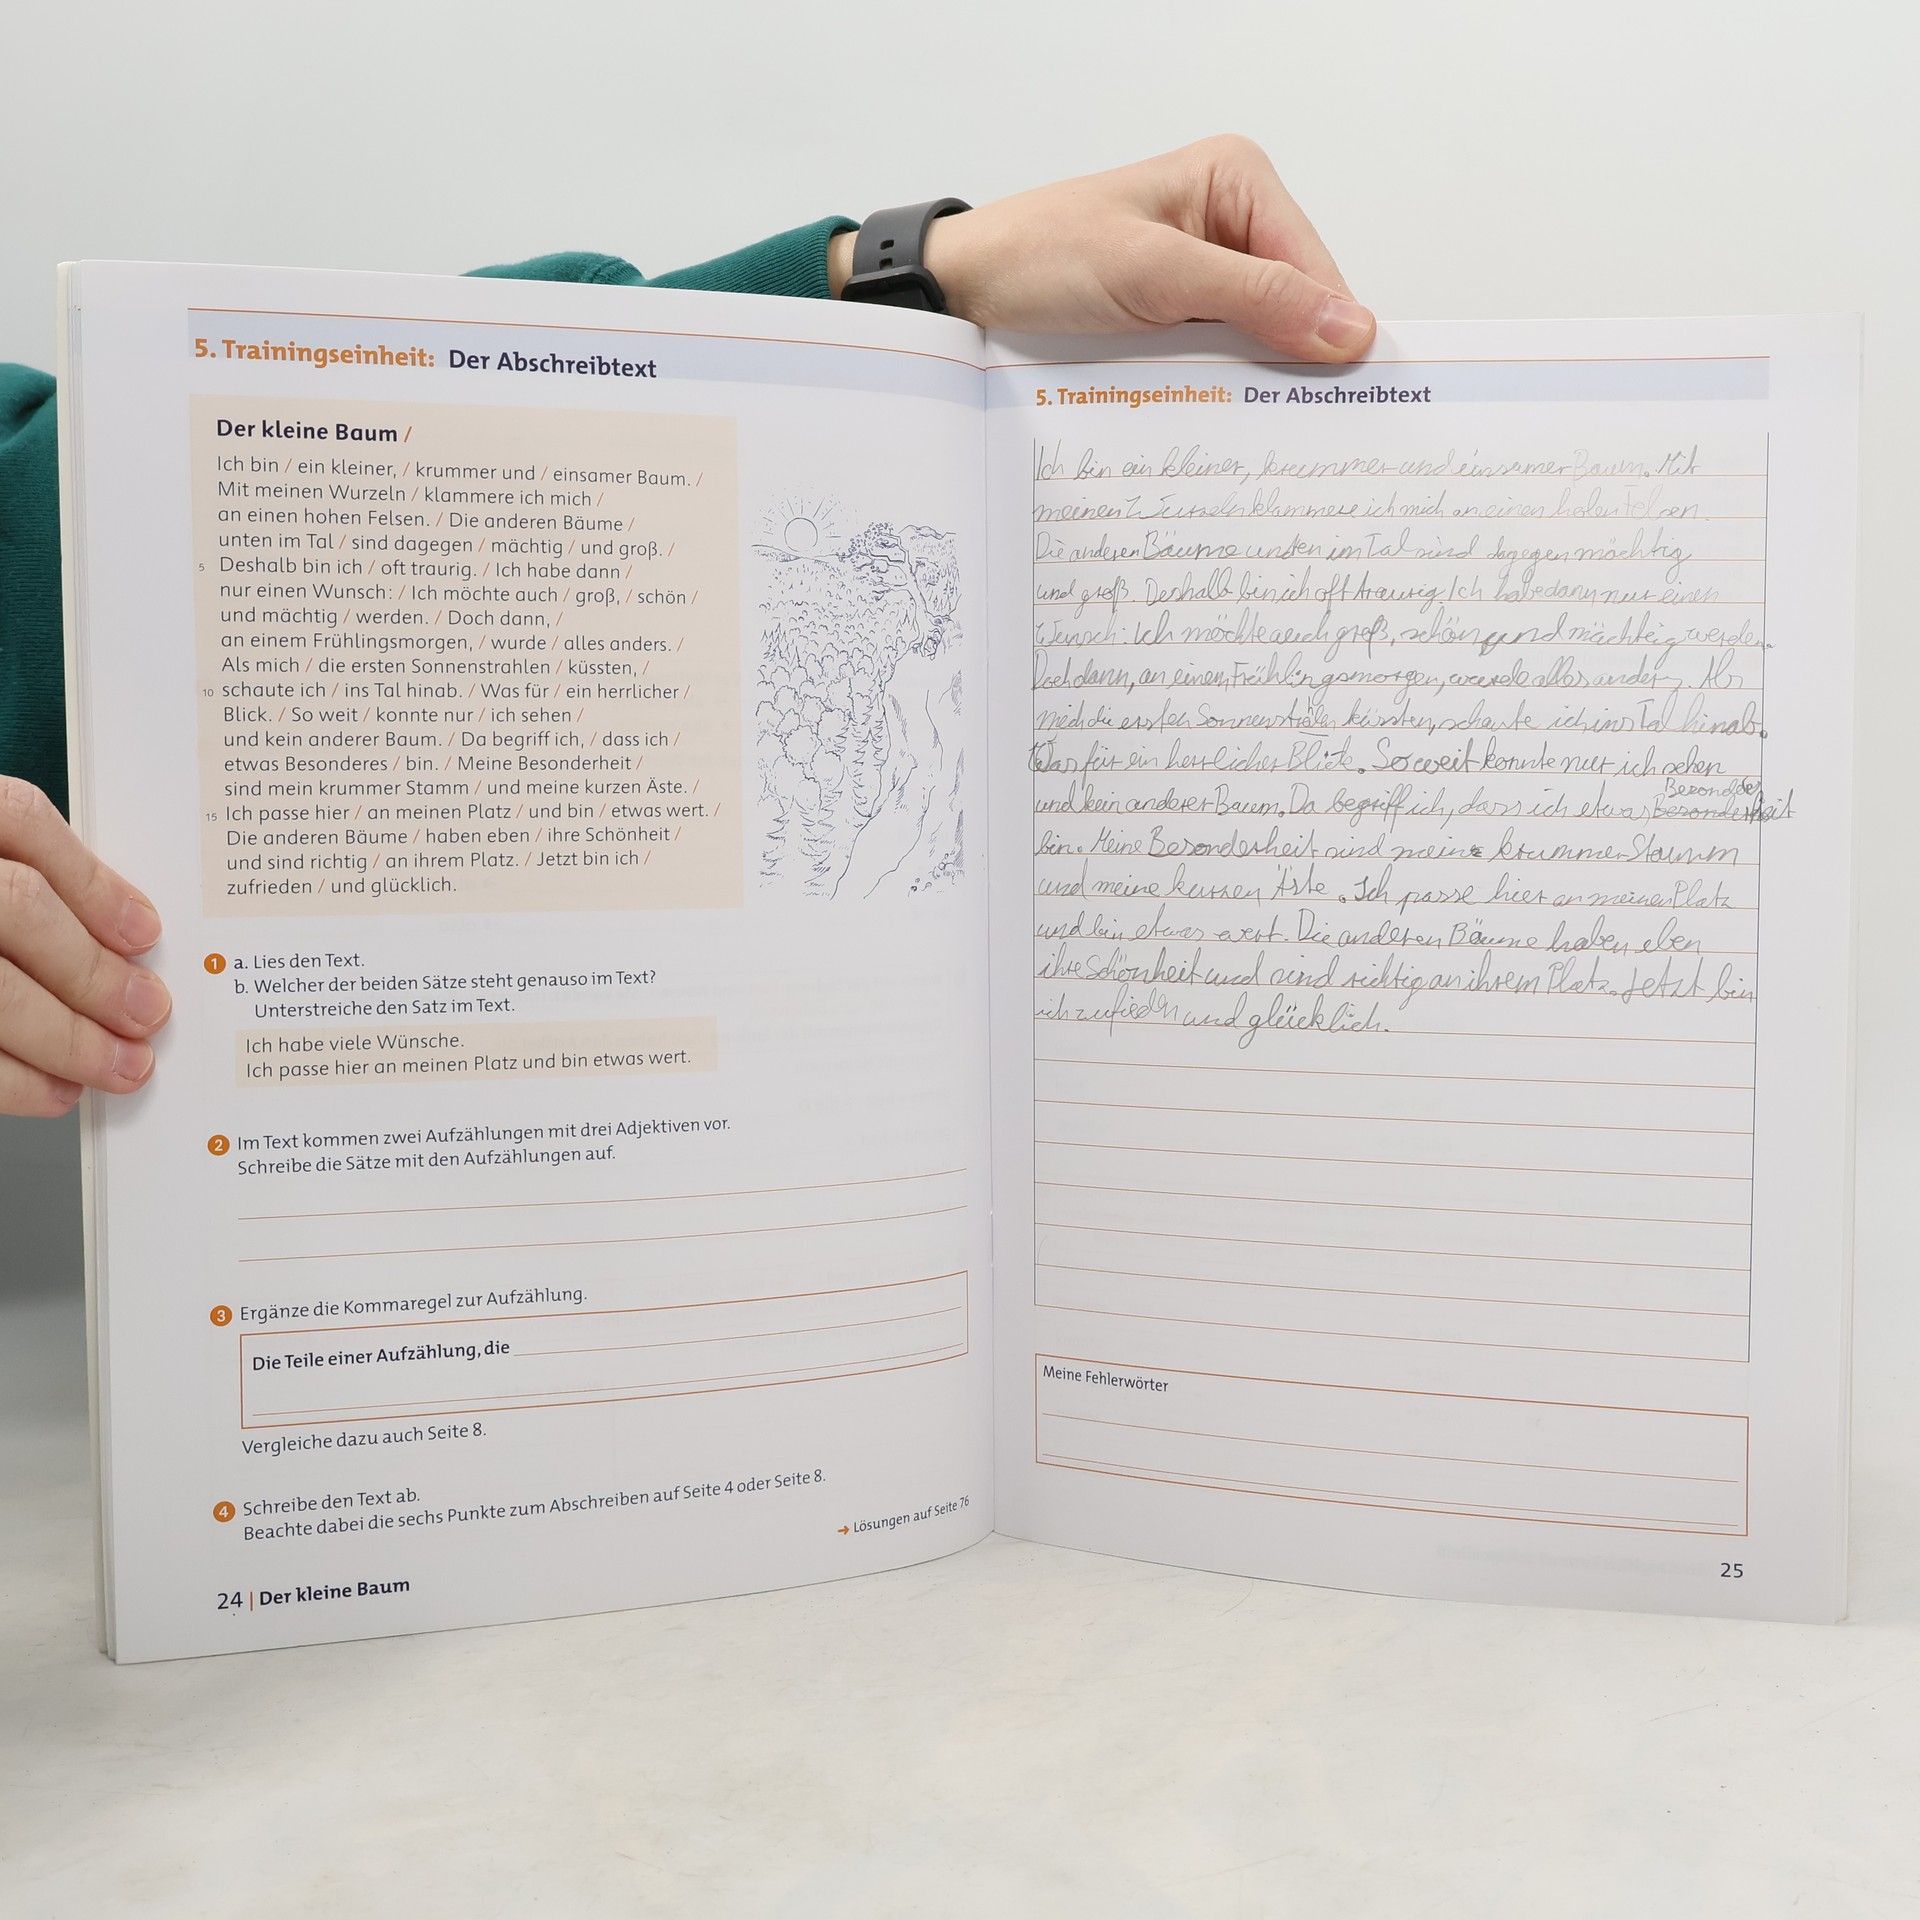 5. Trainingseinheit: Der Abschreibtext
Der kleine Baum /
Ich bin / ein kleiner, / krummer und / einsamer Baum. /
Mit meinen Wurzeln / klammere ich mich /
an einen hohen Felsen. / Die anderen Bäume /
unten im Tal / sind dagegen / mächtig / und groß. /
5 Deshalb bin ich / oft traurig. / Ich habe dann /
nur einen Wunsch: / Ich möchte auch / groß, / schön /
und mächtig / werden. / Doch dann, /
an einem Frühlingsmorgen, / wurde / alles anders. /
Als mich / die ersten Sonnenstrahlen / küssten, /
10 schaute ich / ins Tal hinab. / Was für / ein herrlicher /
Blick. / So weit / konnte nur / ich sehen /
und kein anderer Baum. / Da begriff ich, / dass ich /
etwas Besonderes / bin. / Meine Besonderheit /
sind mein krummer Stamm / und meine kurzen Äste. /
15 Ich passe hier / an meinen Platz / und bin / etwas wert. /
Die anderen Bäume / haben eben / ihre Schönheit /
und sind richtig / an ihrem Platz. / Jetzt bin ich /
zufrieden / und glücklich.
1 a. Lies den Text.
b. Welcher der beiden Sätze steht genauso im Text?
Unterstreiche den Satz im Text.
Ich habe viele Wünsche.
Ich passe hier an meinen Platz und bin etwas wert.
2 Im Text kommen zwei Aufzählungen mit drei Adjektiven vor.
Schreibe die Sätze mit den Aufzählungen auf.
3 Ergänze die Kommaregel zur Aufzählung.
Die Teile einer Aufzählung, die
Vergleiche dazu auch Seite 8.
4 Schreibe den Text ab.
Beachte dabei die sechs Punkte zum Abschreiben auf Seite 4 oder Seite 8.
→ Lösungen auf Seite 76
24 | Der kleine Baum
5. Trainingseinheit: Der Abschreibtext
Ich bin ein kleiner, krummer und einsamer Baum. Mit
meinen Wurzeln klammere ich mich an einen hohen Felsen.
Die anderen Bäume unten im Tal sind dagegen mächtig
und groß. Deshalb bin ich oft traurig. Ich habe dann nur einen
Wunsch: Ich möchte auch groß, schön und mächtig werden.
Doch dann, an einem Frühlingsmorgen, wurde alles anders. Als
mich die ersten küssten, schaute ich ins Tal hinab.
Was für ein herrlicher So weit konnte nur ich sehen
und kein anderer Baum. Da begriff ich, dass ich etwas
bin. Meine Besonderheit sind mein krummer Stamm
und meine kurzen Äste. Ich passe hier an meinen Platz
und bin etwas wert. Die anderen Bäume haben eben
ihre Schönheit und sind richtig an ihrem Platz. Jetzt bin
ich und glücklich.
Meine Fehlerwörter
25